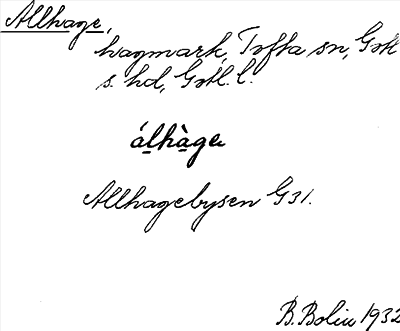 Allhage,
hagmark, Tofta sn, Gotl
s. hd, Gotl. l.
álhàge
Allhagebysen G31.
B. Bolin 1932